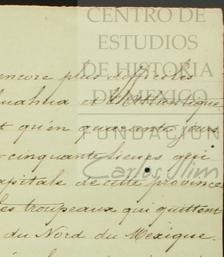 CENTRO DE
ESTUDIOS
DE HISTORIA
DE MEXICO
FUNDACIÓN
Carlos Slim
encore plus difficiles
et l'Atlantique
et qu'en quarante jours
cinquante lieues qui
capitale de cette province
les troupeaux qui quittent
du Nord du Mexique